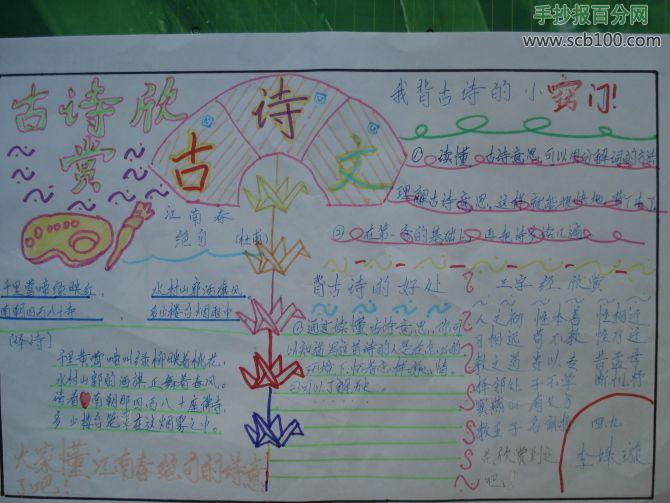 手抄报百分网
www.scb100.com
古诗欣
赏
古诗文
江南春
绝句 (杜牧)
千里莺啼绿映红
水村山郭酒旗风
南朝四百八十寺
多少楼台烟雨中
[译诗]
千里黄莺啼叫绿柳映着桃花,
水村山郭的酒旗
着春风。
南朝那四百八十座佛寺,
多少楼台
在这烟雾之中。
大家懂江南春绝句的诗意
了吧!
我背古诗的小窍门!
①读懂古诗意思,可以用分解词的方法
理解古诗意思,这样就能
②在第一条的基础上,再把诗多读几遍
背古诗的好处
①通过读懂古诗意思,你可
以知道写这首诗的人是在怎么的
②可以了解历史。
三字经欣赏
人之初 性本善 性相近
习相远 苟不教 性乃迁
教之道 贵以专 昔孟母
择邻处 子不学 断机杼
窦燕山 有义方
教五子 名
先欣赏到这
吧!
四九
李姝璇